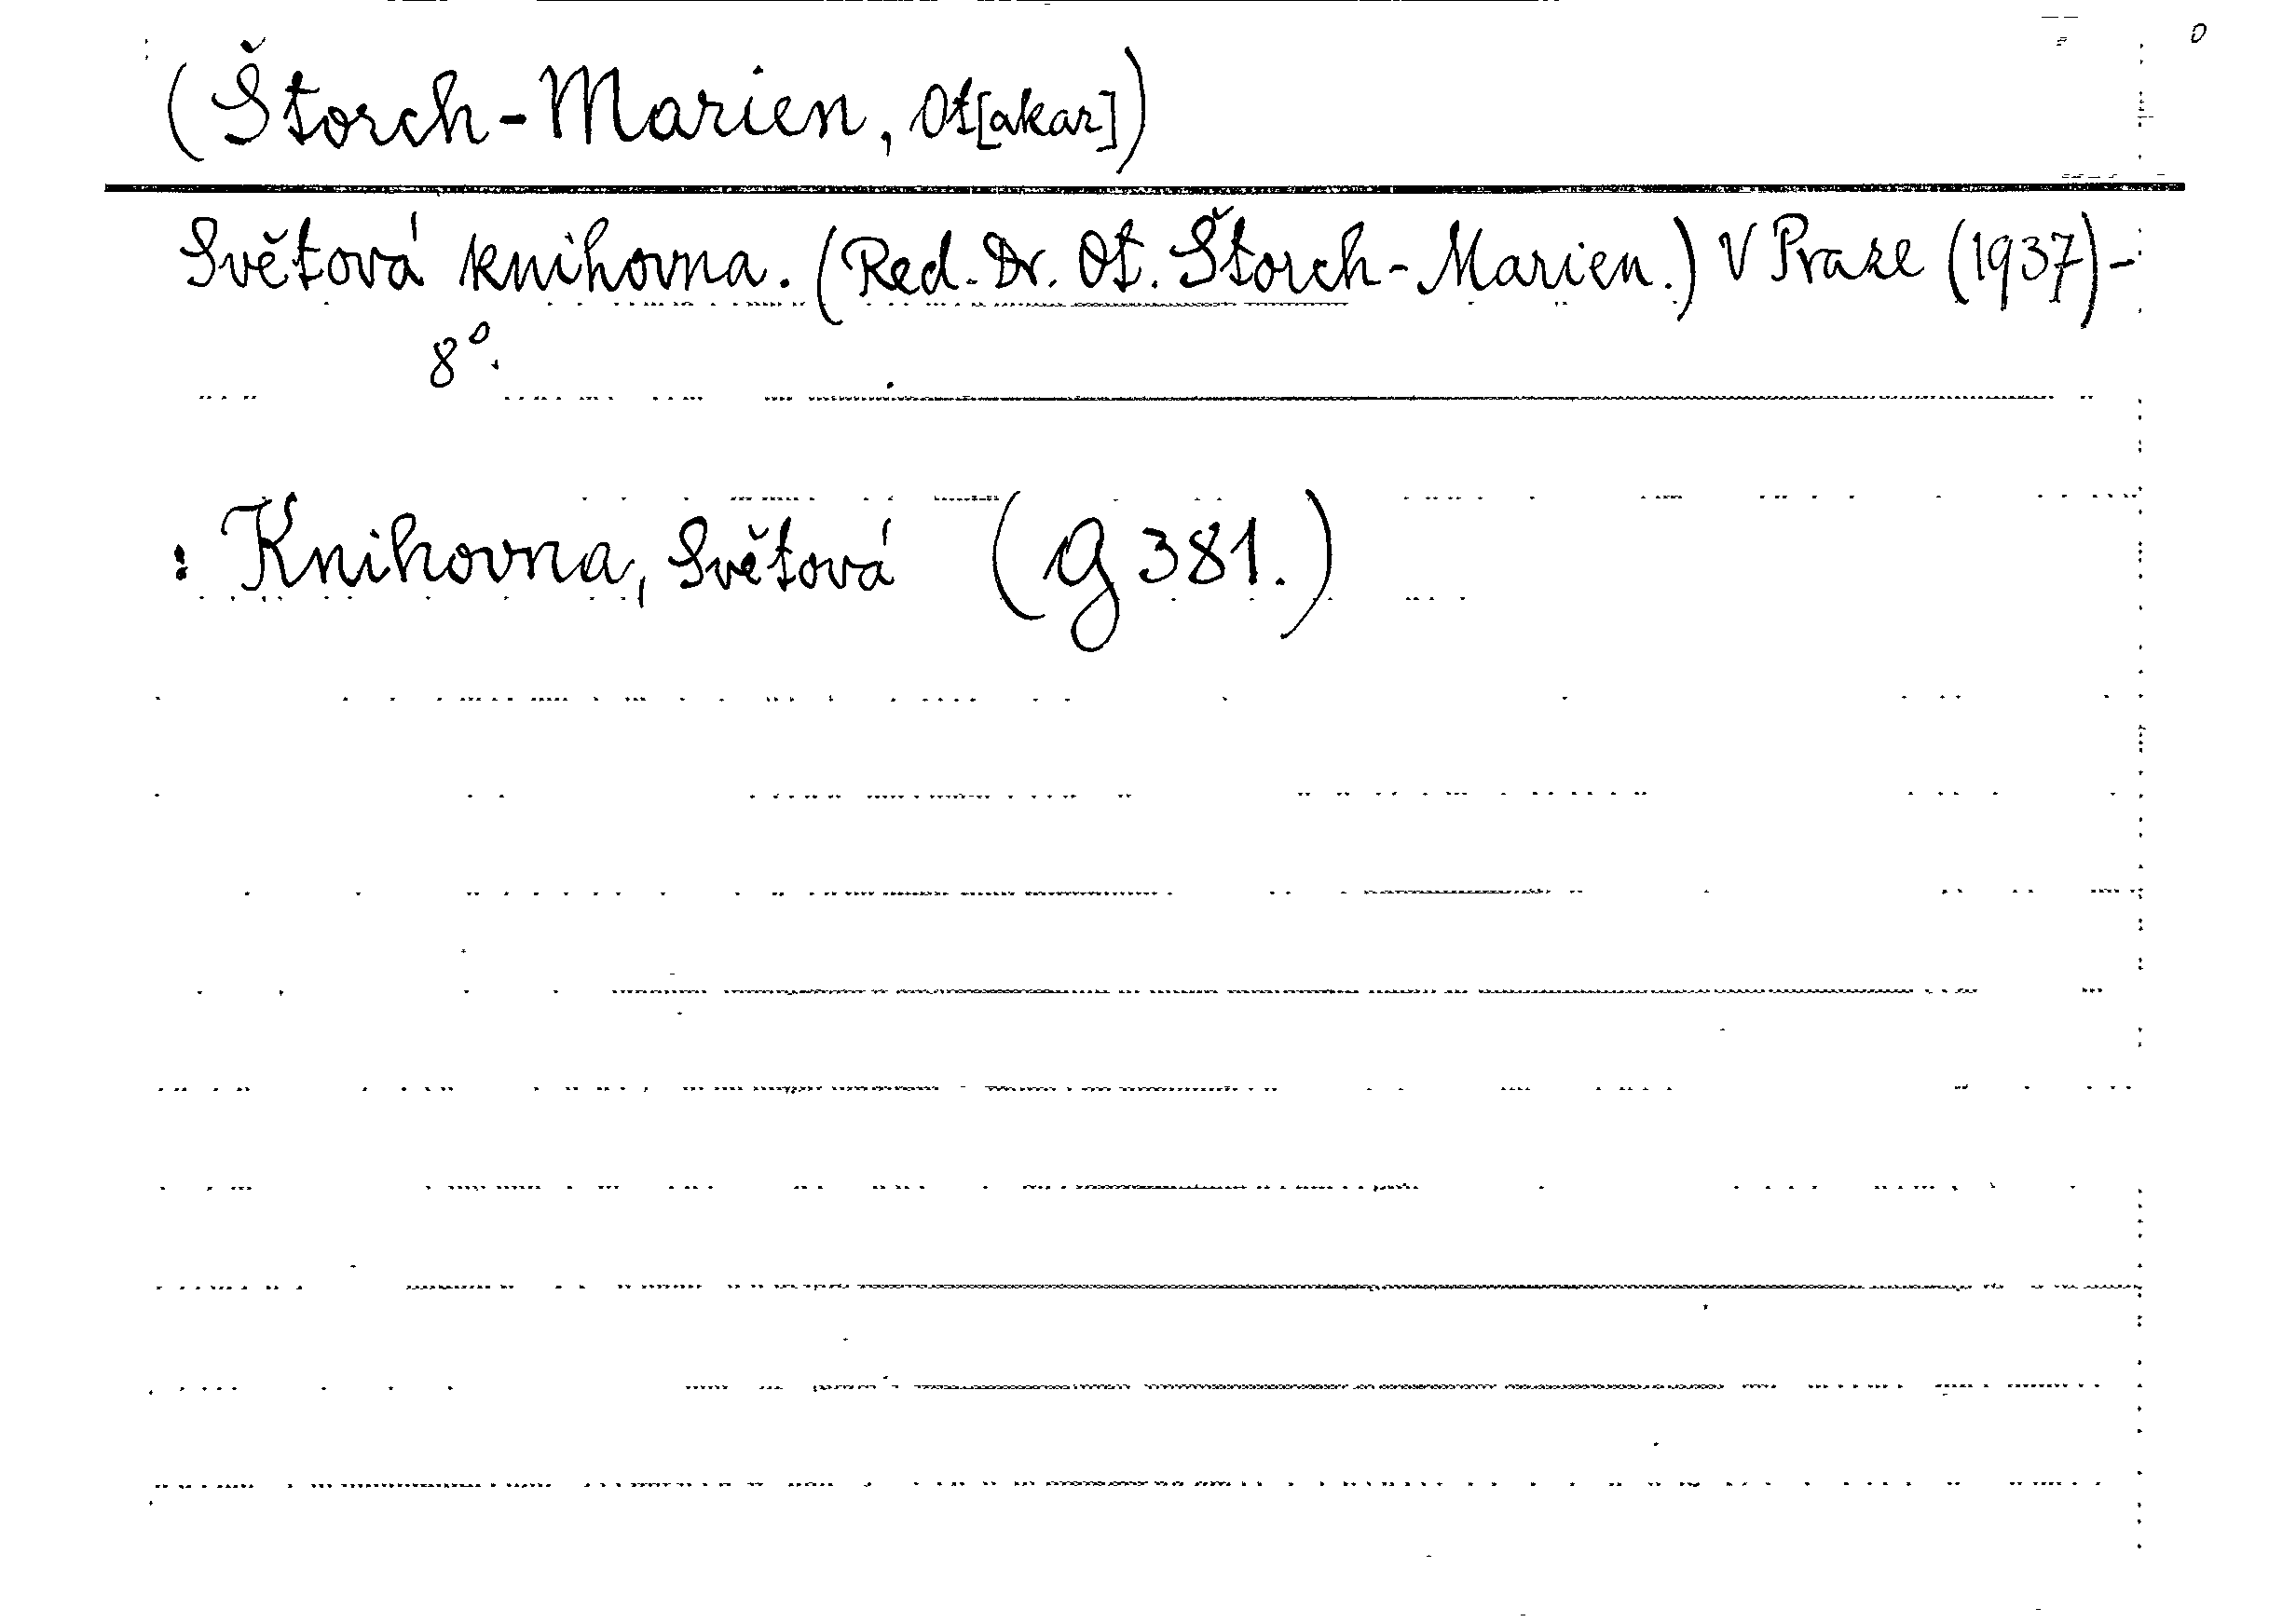 (Štorch-Marien, Ot[akar])
Světová knihovna. (Red. Dr. Ot. Štorch-Marien.) V Praze (1937)-
8°.
: Knihovna, Světová (G 381.)